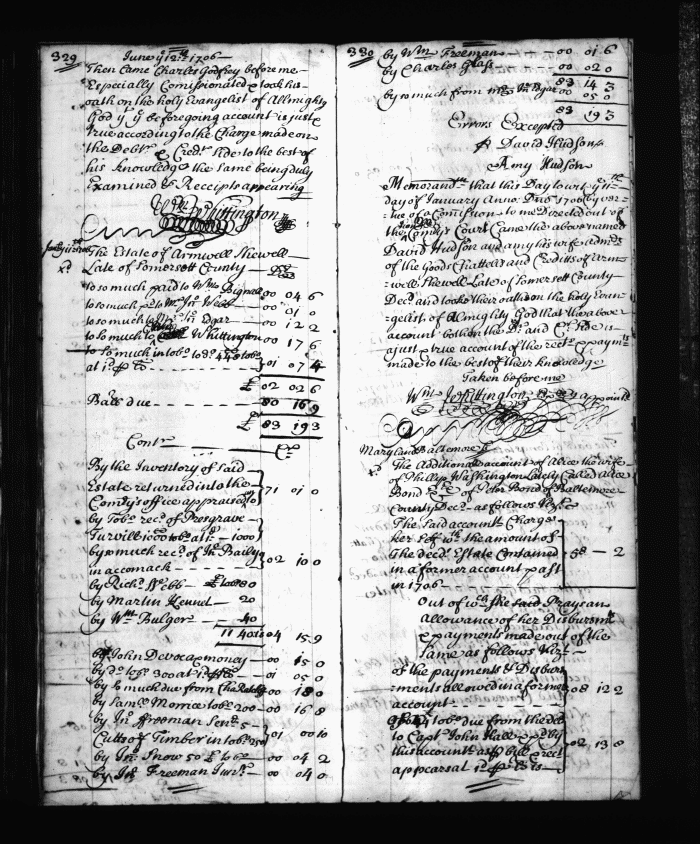 329
June ye 12th 1706
Then Came Charles Godfrey before me
Especially Comissionated & took his
oath on the holy Evangelist of Allmighty
God yt ye beforegoing account is just &
true according to the Charge made on
the Debtr & Credtr side to the best of
his knowledge the same being duly
Examined & Receipts appearing
Wm Whittington
The Estate of Armwell Shewell
Late of Somersett County — Dr
to so much paid to Wm Bignall 00 04 6
to so much pd to Mr Jno Webb 00 01 0
to so much to Mr Jno Edgar 00 12 2
to so much to Whittington 00 17 6
to so much in tobo to do 440 tobo
at 1d 01 07 4
£ 02 02 6
Ballce due 80 16 9
£ 83 19 3
Contr Cr
By the Inventory of said
Estate returned into the
Comdys office appraised to 71 01 0
by Tobo recd of Presgrave
Turvile 1000 tobo at 1d — 1000
by so much recd of Jno Baily
in accomack 02 10 0
by Richd Webb 80
by Martin Kennet — 20
by Wm Bulger — 40
1140 is 04 15 9
by John Devocap money — 00 15 0
by do tobo 300 at 1d 01 05 0
by so much due from Cha 00 18 0
by Samll Morrice tobo 200 00 16 8
by Jno Freeman Senr 5
Cutts of Timber in tobo 250 01 00 10
by Jno Snow 50 £ tobo 00 04 2
by Jno Freeman Junr 00 04 0
330
by Wm Freeman 00 01 6
by Charles Glass 00 02 0
83 14 3
by so much from Mr Jno Edgar 00 05 0
83 19 3
Errors Excepted
David Hudson
Amy Hudson
Memorandm that this Day to wit ye 11th
day of January Anno: Dno 1706 by ver
tue of a Comission to me Directed out of
the Comdys Court Came the abovenamed
David Hudson and amy his wife admrs
of the Goods Chattells and Creditts of Arm
well Shewell Late of Somersett County
Decd and tooke their oaths on the holy Evan
gelist of Almighty God that the above
account both on the Dr and Cr side is
a just & true account of the rects & paymts
made to the best of their knowledge
Taken before me
Wm Whittington
Maryland Baltemore Ss
The Additionall account of Alice the wife
of Phillip Washington Lately Called Alice
Bond of Peter Bond of Baltemore
County Decd as follows Vizt
The said accountt Charges
her self wth the amount of
the decd Estate Contained
in a former account past
in 1706 58 — 2
Out of wch the said Prays an
Allowance of her Disbursmts
& payments made out of the
same as follows Vizt
of the payments & Disburs
ments allowed in a former
account 08 12 2
tobo due from the decd
to Capt John Hall & pd by
this account as bill & rect
appears at 1d is 02 13 8